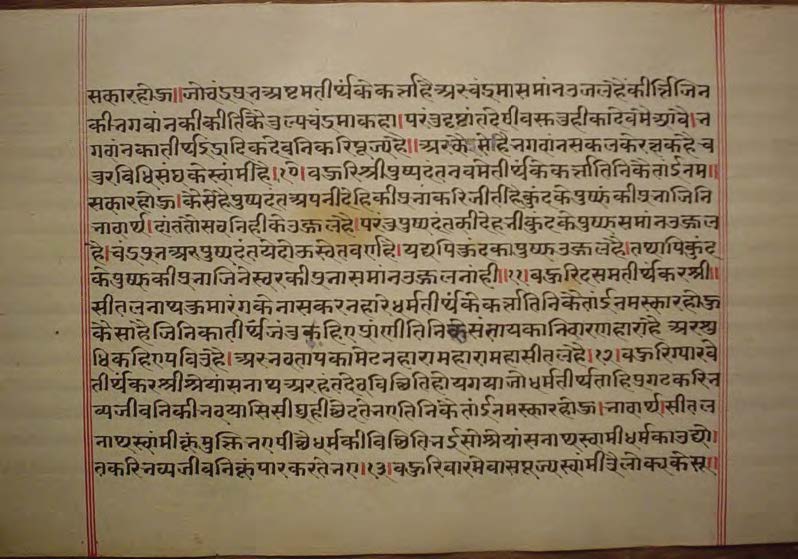 सकारहोऊ॥जोचंऽप्रनअष्टमतीर्थकेकर्त्ताहैअरचंऽमासमांनउजलहैकीर्त्तिजिन
कीनगवांनकीकीर्तिकेतुल्यचंऽमाकहा।परउदृष्टांतदेयीवस्तुहीकादेवमेआवै।न
गवांनकातीर्थइंऽादिकदेवनिकरिपूज्यहै॥अरकैसेहैनगवांनसकलकेरक्षकहैच
तुरविधिसंघकेस्वांमीहै।१०।वऊरिश्रीपुष्पदंतनवमेतीर्थकेकर्त्तातिनिकैतांईनम॥
सकारहोऊ।कैसेहैपुष्पदंतअपनीदेहकीप्रनाकरिजीतीहैकुंदकेपुष्फकीप्रनाजिनि
नावार्थ।दांततौसवनिहीकेउज्जलहै।परंतुपुष्पदंतकीदेहनीकुंदकेपुष्फसमांनउज्जल
है।चंऽप्रनअरपुष्पदंतयेदोऊस्वेतवर्णहै।यद्यपिकुंदकापुष्फउज्जलहै।तथापिकुंद
केपुष्फकीप्रनाजिनेस्वरकीप्रनासमांनउज्जलनांही॥११।वऊरिदसमतीर्थकरश्री॥
सीतलनाथकुमारगकेनासकरनहारेधर्मतीर्थकेकर्त्तातिनिकेतांईनमस्कारहोऊ
कैसाहैजिनिकातीर्थजंतुकहिएप्रांणीतिनिकेसंतापकानिवारणहाराहै अरशु
धिकहिएपवित्रहै।अरनवतापकामेटनहारामहारामहासीतलहै।१२।वऊरिग्यारवे
तीर्थकरश्रीश्रेयांसनाथअरहतदेवविच्छितिहोयगयाजोधर्मतीर्थताहिप्रगटकरिन
व्यजीवनिकीनवपासिसीघ्रहीछेदतेनएतिनिकेतांईनमस्कारहोऊ।नावार्थ।सीतल
नाथस्वांमीकूंमुक्तिनएपीछैधर्मकीविच्छितिनईसोश्रेयांसनाथस्वामीधर्मकाउद्यो॰
तकरिनव्यजीवनिकूंपारकरतेनए।१३।वऊरिवारमेवासपूज्यस्वांमीत्रैलोक्यकेसू॥